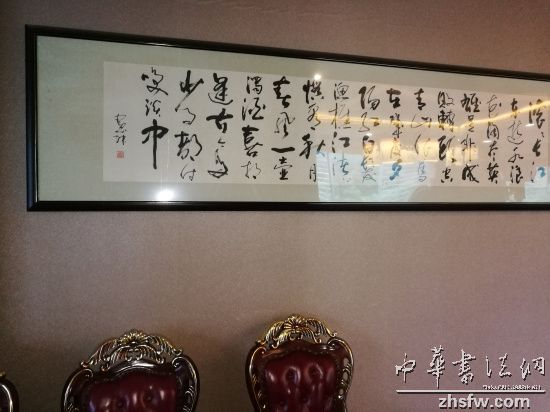 滚滚长江
东逝水浪
花淘尽英
雄是非成
败转头空
青山依旧
在几度夕
阳红白发
渔樵江渚上
惯看秋月
春风一壶
浊酒喜相
逢古今多
少事都付
笑谈中
中华书法网
zhsfw.com